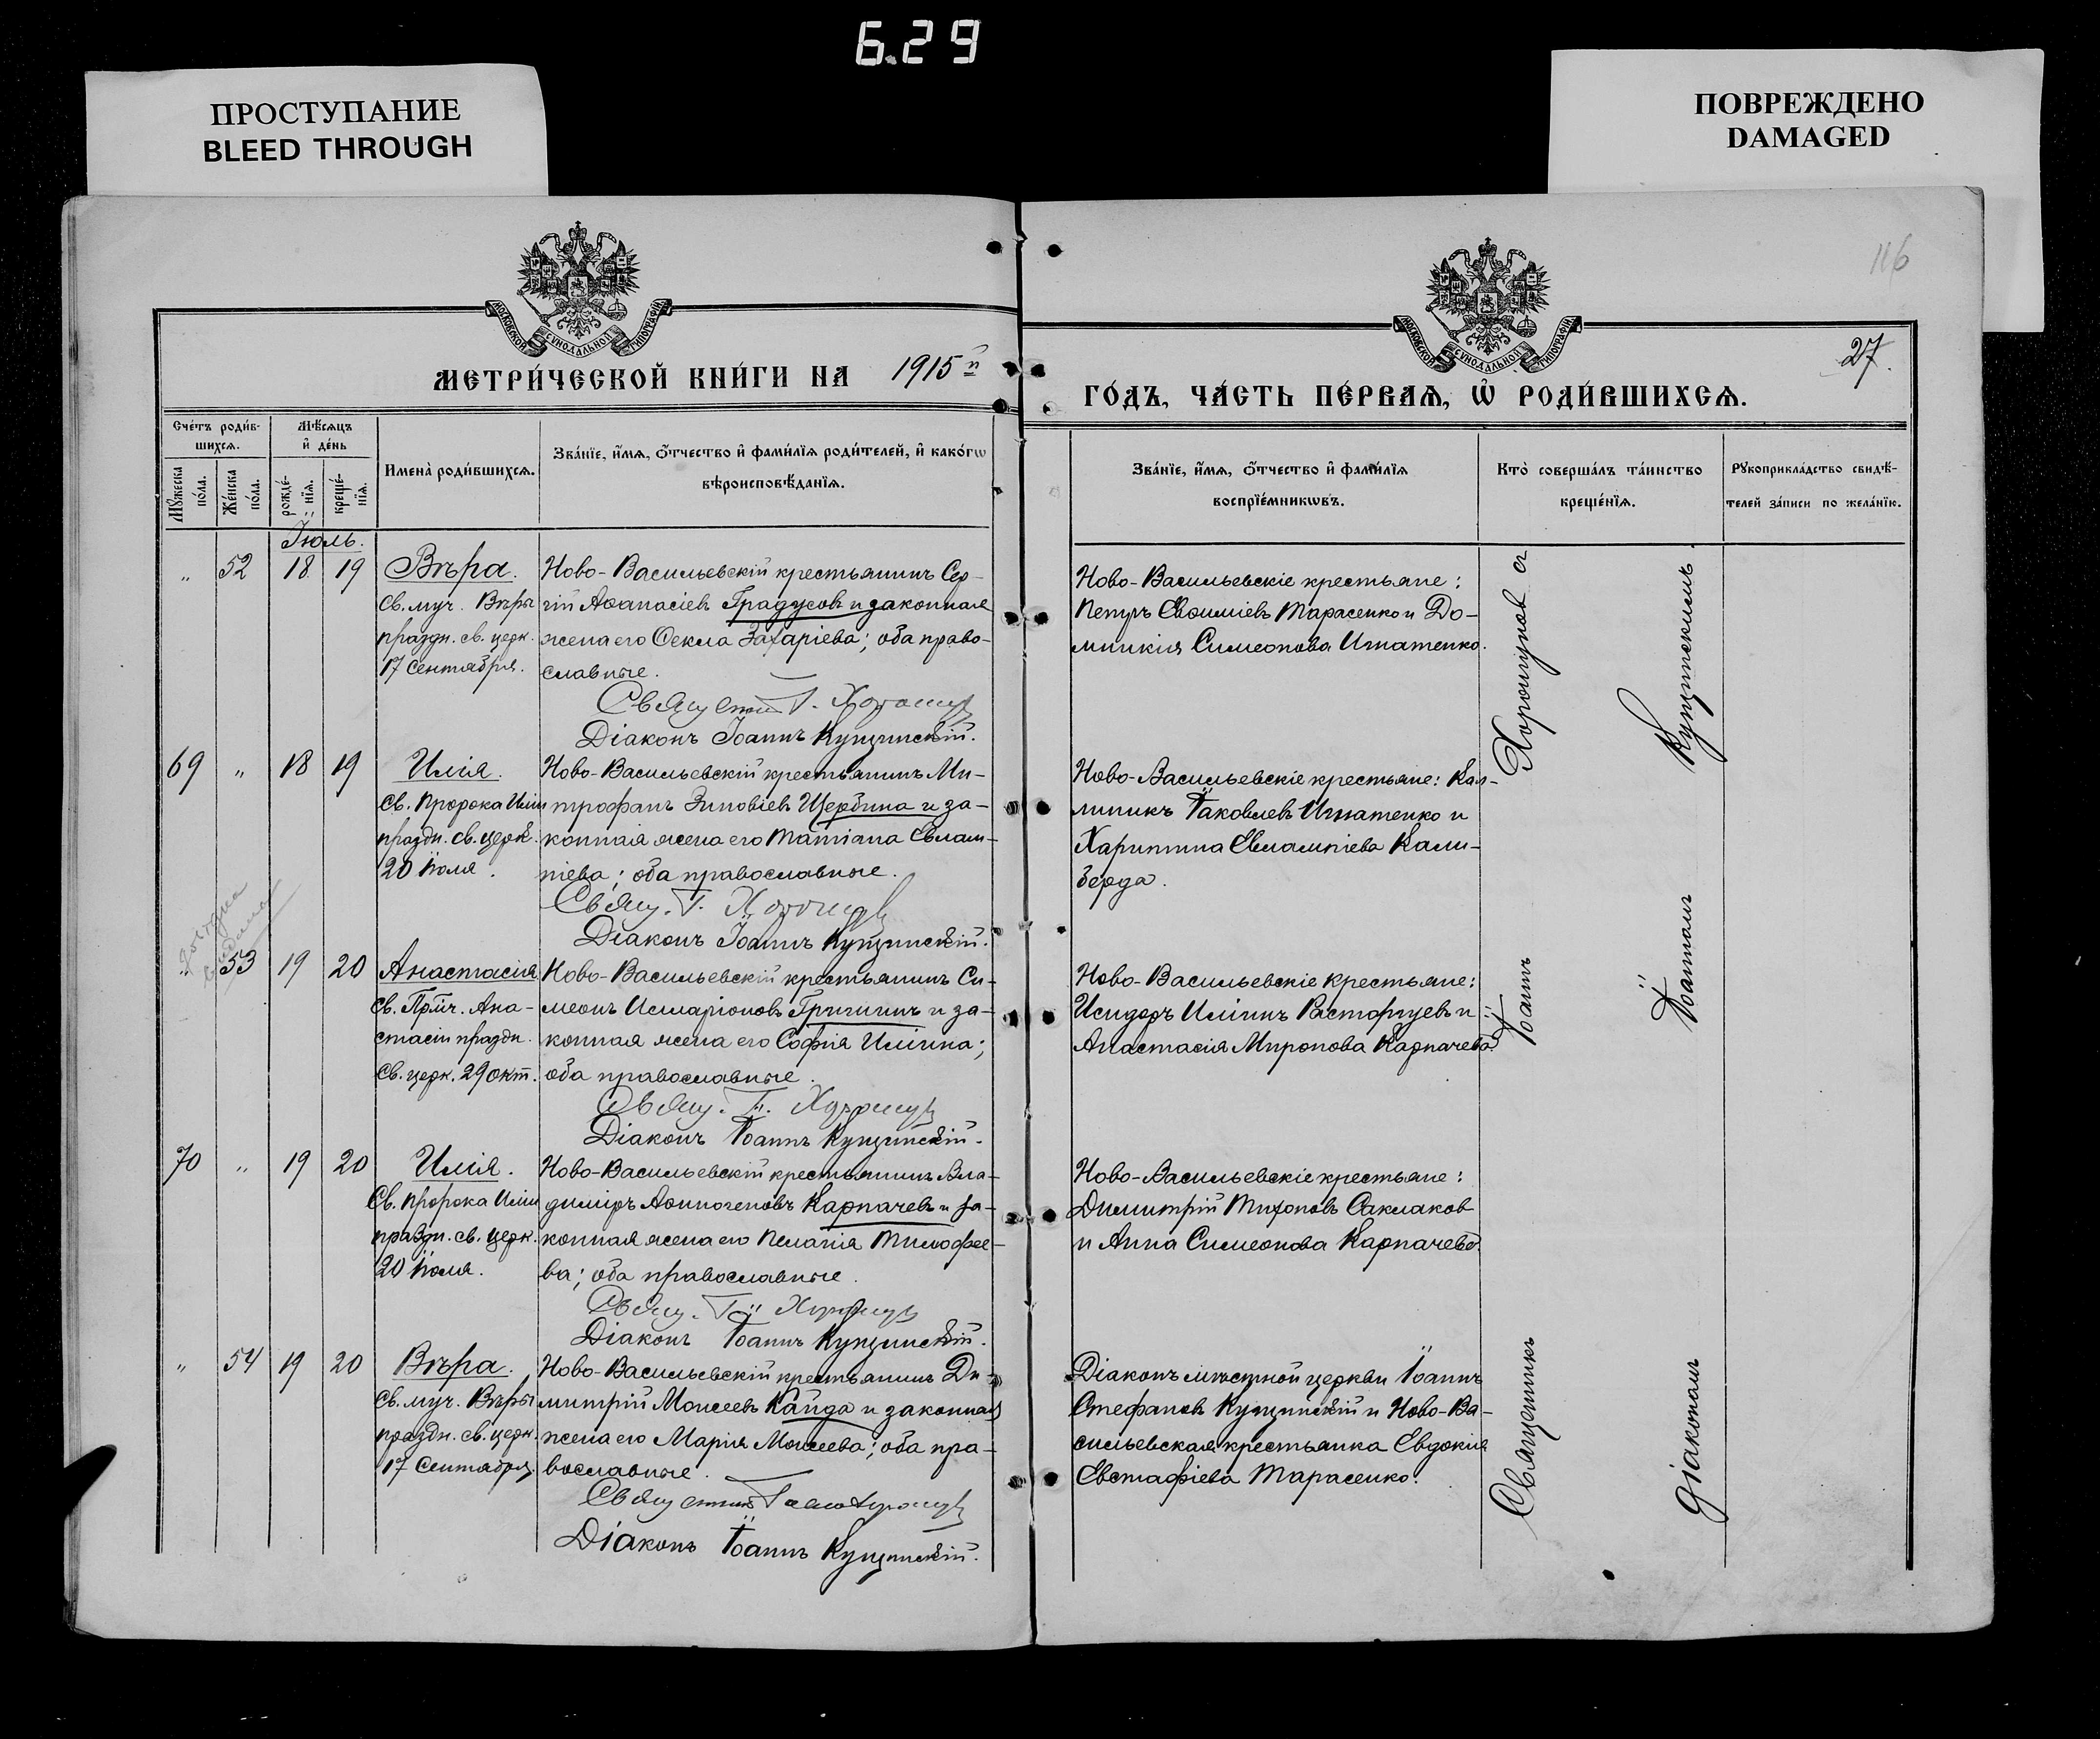 6.29
ПРОСТУПАНИЕ
BLEED THROUGH
ПОВРЕЖДЕНО
DAMAGED
116
МОСКОВСКОЙ СУНОДАЛЬНОЙ ТИПОГРАФІИ
МОСКОВСКОЙ СУНОДАЛЬНОЙ ТИПОГРАФІИ
27.
МЕТРИ́ЧЕСКОЙ КНИ́ГИ НА 1915й
ГО́ДЪ, ЧА́СТЬ ПЕ́РВАѦ, Ѡ РОДИ́ВШИХСѦ.
Сче́тъ роди́в-
шихсѧ.
Мꙋ́жеска по́ла.
Же́нска по́ла.
Мѣ́сѧцъ
и҆ де́нь
рожде́-
нїѧ.
креще́-
нїѧ.
Имена̀ роди́вшихсѧ.
Зва́нїе, и҆́мѧ, ѻ҆́тчество и҆ фами́лїѧ роди́телей, и҆ како́гѡ
вѣроисповѣ́данїѧ.
Зва́нїе, и҆́мѧ, ѻ҆́тчество и҆ фами́лїѧ
воспрїе́мникѡвъ.
Кто̀ соверша́лъ та́инство
креще́нїѧ.
Рꙋкоприкла́дство свидѣ́-
телей за́писи по жела́нїю.
Іюль.
„ 52 18 19 Вѣра.
Св. муч. Вѣры
праздн. св. церк.
17 Сентября.
Ново-Васильевскій крестьянинъ Сер-
гій Аѳанасіевъ Градусовъ и законная
жена его Ѳекла Захаріева; оба право-
славные.
Священникъ І. Хорошун
Діаконъ Іоаннъ Кунцинскій.
Ново-Васильевскіе крестьяне:
Петръ Евѳиміевъ Тарасенко и До-
мникія Симеонова Игнатенко.
69 „ 18 19 Илія.
Св. Пророка Иліи
праздн. св. церк.
20 Іюля.
Ново-Васильевскій крестьянинъ Ми-
трофанъ Зиновіевъ Щербина и за-
конная жена его Татіана Евлам-
піева; оба православные.
Свящ. І. Хорошун
Діаконъ Іоаннъ Кунцинскій.
Ново-Васильевскіе крестьяне: Кал-
линикъ Іаковлевъ Игнатенко и
Харитина Евлампіева Кали-
берда.
„ 53 19 20 Анастасія
Св. Прмч. Ана-
стасіи праздн.
св. церк. 29 окт.
Ново-Васильевскій крестьянинъ Си-
меонъ Иларіоновъ Григинъ и за-
конная жена его Софія Иліина;
оба православные.
Свящ. І. Хорошун
Діаконъ Іоаннъ Кунцинскій.
Ново-Васильевскіе крестьяне:
Исидоръ Иліинъ Расторгуевъ и
Анастасія Миронова Карпачева.
70 „ 19 20 Илія.
Св. Пророка Иліи
праздн. св. церк.
20 Іюля.
Ново-Васильевскій крестьянинъ Вла-
диміръ Аѳиногеновъ Карпачевъ и за-
конная жена его Пелагія Тимофее-
ва; оба православные.
Свящ. І. Хорошун
Діаконъ Іоаннъ Кунцинскій.
Ново-Васильевскіе крестьяне:
Димитрій Тихоновъ Саклаковъ
и Анна Симеонова Карпачева.
„ 54 19 20 Вѣра.
Св. муч. Вѣры
праздн. св. церк.
17 Сентября.
Ново-Васильевскій крестьянинъ Ди-
митрій Моисеевъ Кайда и законная
жена его Марія Моисеева; оба пра-
вославные.
Священникъ Хорошун
Діаконъ Іоаннъ Кунцинскій.
Діаконъ мѣстной церкви Іоаннъ
Стефановъ Кунцинскій и Ново-Ва-
сильевская крестьянка Евдокія
Евстафіева Тарасенко.
Священникъ Іоаннъ Хорошуновъ съ
Діакономъ Іоанномъ Кунцинскимъ.